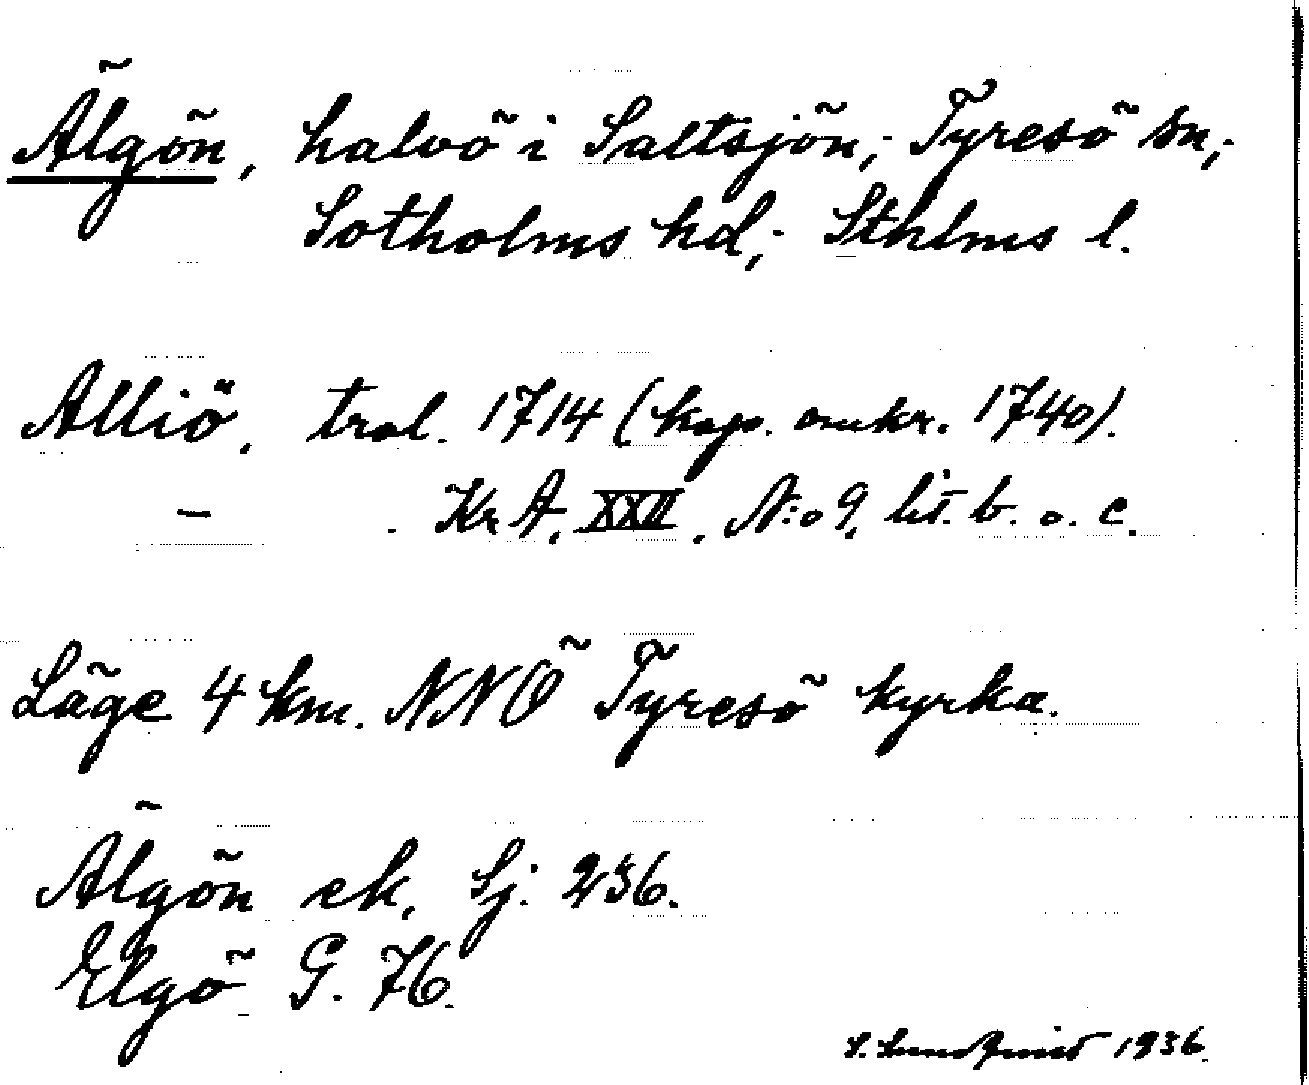 Älgön, halvö i Saltsjön; Tyresö sn;
Sotholms hd; Sthlms l.
Alliö, trol. 1714 (kop. omkr. 1740).
— . Kr A. XXII. N:o 9. lit. b. o. c.
Läge 4 km. NNÖ Tyresö kyrka.
Älgön ek. Sj. 236.
Elgö G. 76.
S. Lundqvist 1936.